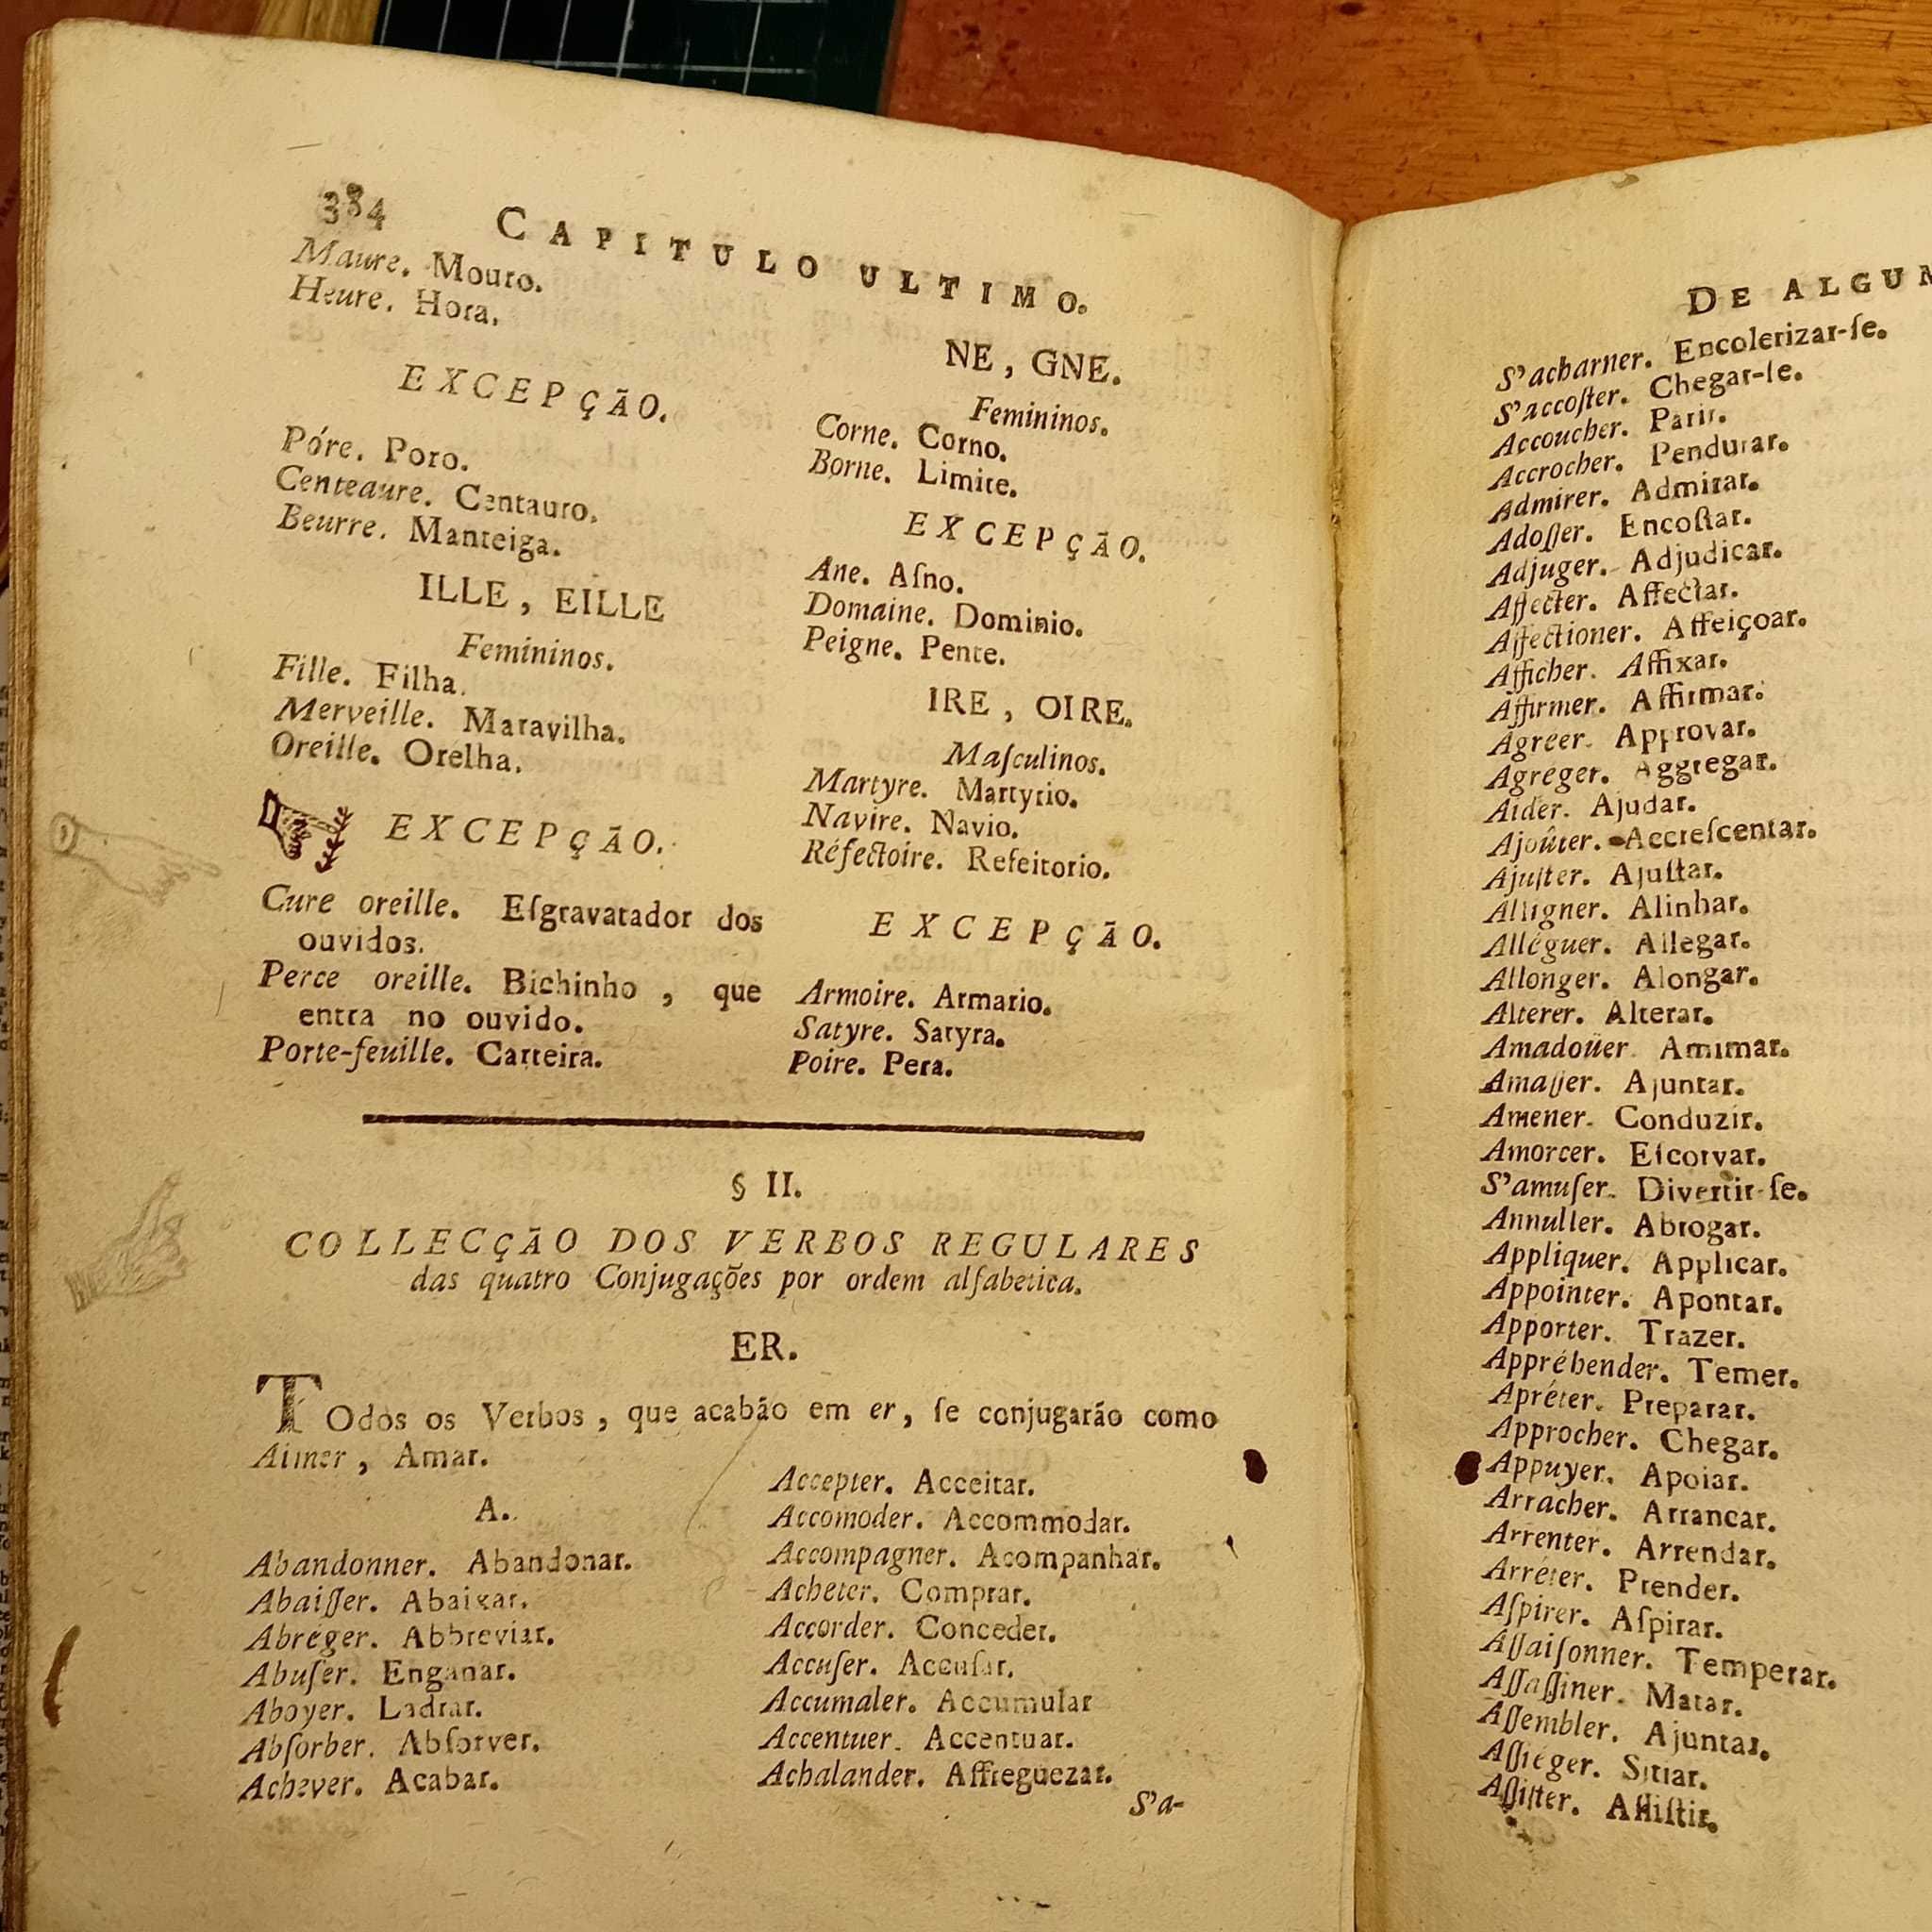 384
CAPITULO ULTIMO.
Maure. Mouro.
Heure. Hora.
EXCEPÇÃO.
Póre. Poro.
Centeaure. Centauro.
Beurre. Manteiga.
ILLE, EILLE
Femininos.
Fille. Filha.
Merveille. Maravilha.
Oreille. Orelha.
EXCEPÇÃO.
Cure oreille. Eſgravatador dos
ouvidos.
Perce oreille. Bichinho, que
entra no ouvido.
Porte-feuille. Carteira.
NE, GNE.
Femininos.
Corne. Corno.
Borne. Limite.
EXCEPÇÃO.
Ane. Aſno.
Domaine. Dominio.
Peigne. Pente.
IRE, OIRE.
Maſculinos.
Martyre. Martyrio.
Navire. Navio.
Réfectoire. Refeitorio.
EXCEPÇÃO.
Armoire. Armario.
Satyre. Satyra.
Poire. Pera.
§ II.
COLLECÇÃO DOS VERBOS REGULARES
das quatro Conjugações por ordem alfabetica.
ER.
TOdos os Verbos, que acabão em er, ſe conjugarão como
Aimer, Amar.
A.
Abandonner. Abandonar.
Abaiſſer. Abaixar.
Abréger. Abbreviar.
Abuſer. Enganar.
Aboyer. Ladrar.
Abſorber. Abſorver.
Achever. Acabar.
Accepter. Acceitar.
Accomoder. Accommodar.
Accompagner. Acompanhar.
Acheter. Comprar.
Accorder. Conceder.
Accuſer. Accuſar.
Accumaler. Accumular
Accentuer. Accentuar.
Achalander. Affreguezar.
S'a-
DE ALGUM
S'acharner. Encolerizar-ſe.
S'accoſter. Chegar-ſe.
Accoucher. Parir.
Accrocher. Pendurar.
Admirer. Admirar.
Adoſſer. Encoſtar.
Adjuger. Adjudicar.
Affecter. Affectar.
Affectioner. Affeiçoar.
Afficher. Affixar.
Affirmer. Affirmar.
Agréer. Approvar.
Agréger. Aggregar.
Aider. Ajudar.
Ajoûter. Accreſcentar.
Ajuſter. Ajuſtar.
Alligner. Alinhar.
Alléguer. Allegar.
Allonger. Alongar.
Alterer. Alterar.
Amadoüer. Amimar.
Amaſſer. Ajuntar.
Amener. Conduzir.
Amorcer. Eſcorvar.
S'amuſer. Divertir-ſe.
Annuller. Abrogar.
Appliquer. Applicar.
Appointer. Apontar.
Apporter. Trazer.
Appréhender. Temer.
Apréter. Preparar.
Approcher. Chegar.
Appuyer. Apoiar.
Arracher. Arrancar.
Arrenter. Arrendar.
Arréter. Prender.
Aſpirer. Aſpirar.
Aſſaiſonner. Temperar.
Aſſaſſiner. Matar.
Aſſembler. Ajuntar.
Aſſiéger. Sitiar.
Aſſiſter. Aſſiſtir.